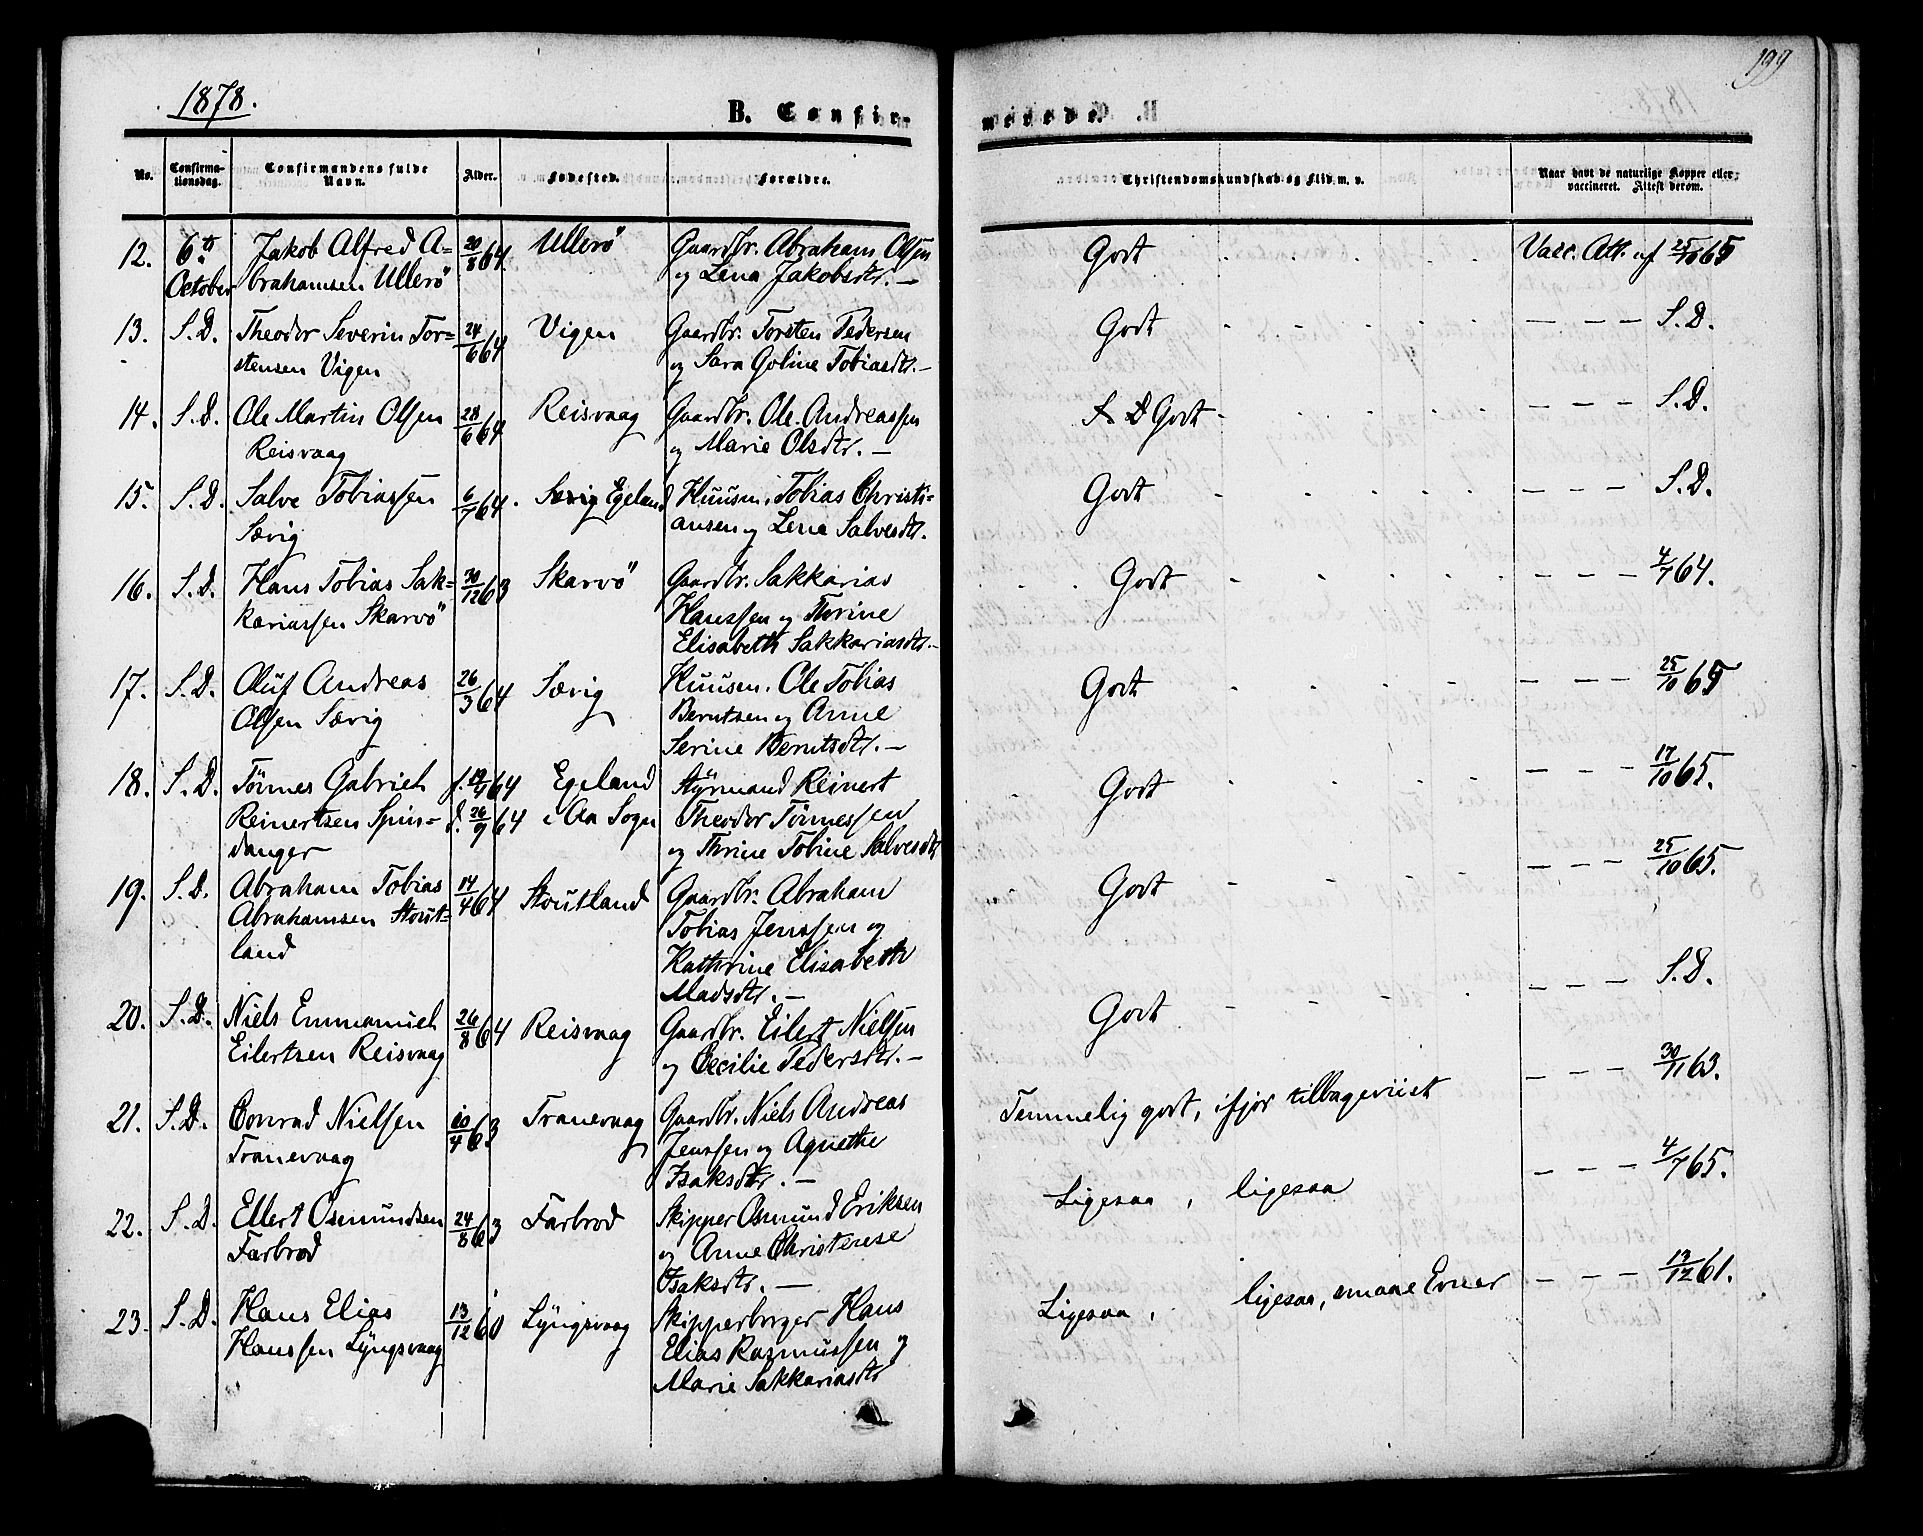 1878.
B. Confir
199
No.
Confirma-
tionsdag.
Confirmandens fulde
Navn.
Alder.
Fødested.
Forældre.
Christendomskundskab og Flid m. v.
Naar havt de naturlige Kopper eller
vaccineret. Attest derom.
12. 6te Jakob Alfred A- 20/8 64 Ullerö Gaardbr. Abraham Olsen Godt Vacc. Att. af 25/10 65
October brahamsen Ullerö og Lena Jakobsdtr. —
13. S. D. Theodor Severin Tor- 24/6 64 Vigen Gaardbr. Torsten Pedersen Godt — — — S. D.
stensen Vigen og Sara Goline Tobiasdtr. —
14. S. D. Ole Martin Olsen 28/6 64 Reisvaag Gaardbr. Ole Andreassen S D Godt — — — S. D.
Reisvaag og Marie Olsdtr. —
15. S. D. Salve Tobiassen 6/7 64. Sævig Egeland Huusm. Tobias Christi- Godt — — — S. D.
Sævig ansen og Lena Salvesdtr.
16. S. D. Hans Tobias Sak- 30/12 63 Skarvö Gaardbr. Sakkarias Godt — — — 4/7 64.
kariassen Skarvö Hanssen og Thrine
Elisabeth Sakkariasdtr. —
17. S. D. Oluf Andreas 26/3 64 Sævig Huusm. Ole Tobias Godt — — — 25/10 65
Olsen Sævig Berntsen og Anne
Serine Berntsdtr. —
18. S. D. Tönnes Gabriel f. 19/4 64 Egeland Styrmand Reinert Godt — — — 17/10 65.
Reinertsen Spin- d. 26/9 64 i Aa Sogn Theodor Tönnessen
danger og Thrine Tobine Salvesdtr
19. S. D. Abraham Tobias 14/4 64 Stoutland Gaardbr. Abraham Godt — — — 25/10 65.
Abrahamsen Stout- Tobias Jenssen og
land Kathrine Elisabeth
Madsdtr. —
20. S. D. Niels Emmanuel 26/8 64 Reisvaag Gaardbr. Eilert Nielsen Godt — — — S. D.
Eilertsen Reisvaag og Cecilie Pedersdtr. —
21. S. D. Conrad Nielsen 20/4 63 Tranevaag Gaardbr. Niels Andreas Temmelig godt, ifjor tilbageviist — — — 30/11 63.
Tranevaag Jenssen og Agnethe
Isaksdtr. —
22. S. D. Ellert Osmundsen 24/8 63 Farbrod Skipper Osmund Eriksen Ligesaa, ligesaa — — — 4/7 65.
Farbrod og Anne Christense
Isaksdtr. —
23. S. D. Hans Elias 13/12 60 Lyngsvaag Skipperborger Hans Ligesaa, ligesaa, smaae Evner — — — 13/12 61.
Hanssen Lyngsvaag Elias Rasmussen og
Marie Sakkariasdtr